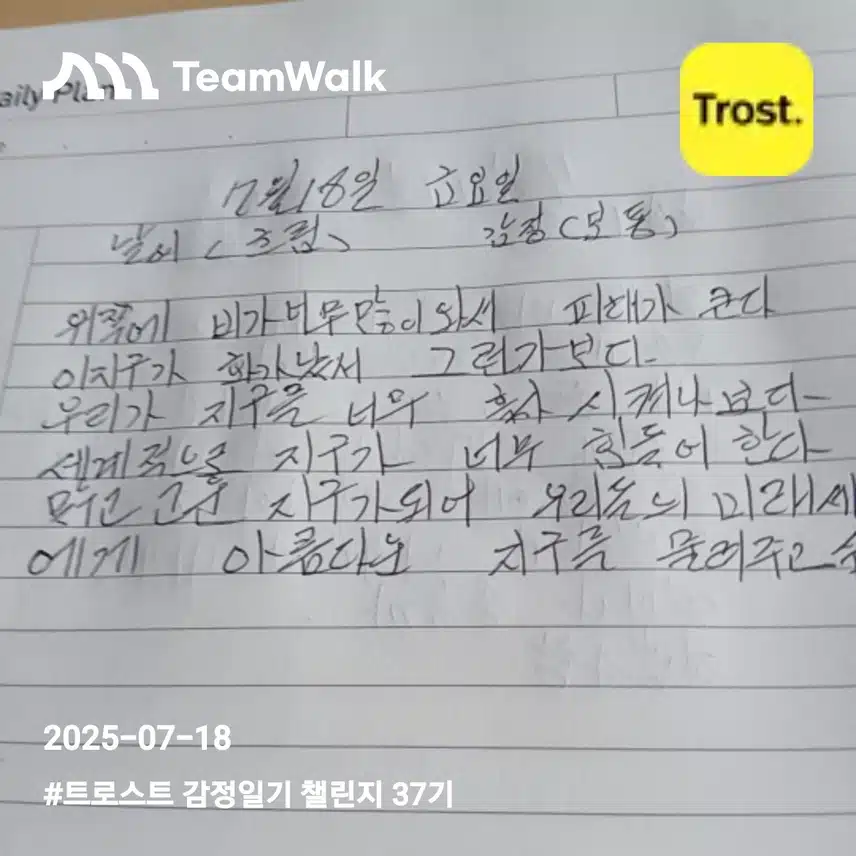 TeamWalk
Trost.
aily Plan
7월 18일 금요일
날씨 (흐림) 감정 (보통)
비가 너무 많이 와서 피해가 큰다
이지구가 화가 났서 그런가보다
우리가 지구를 너무 시켜나보다
센계적으를 지구가 너무 힘들어 한다
지구가되어 우리들의 미래세
에게 아름다운 지구를 물려주고
2025-07-18
#트로스트 감정일기 챌린지 37기